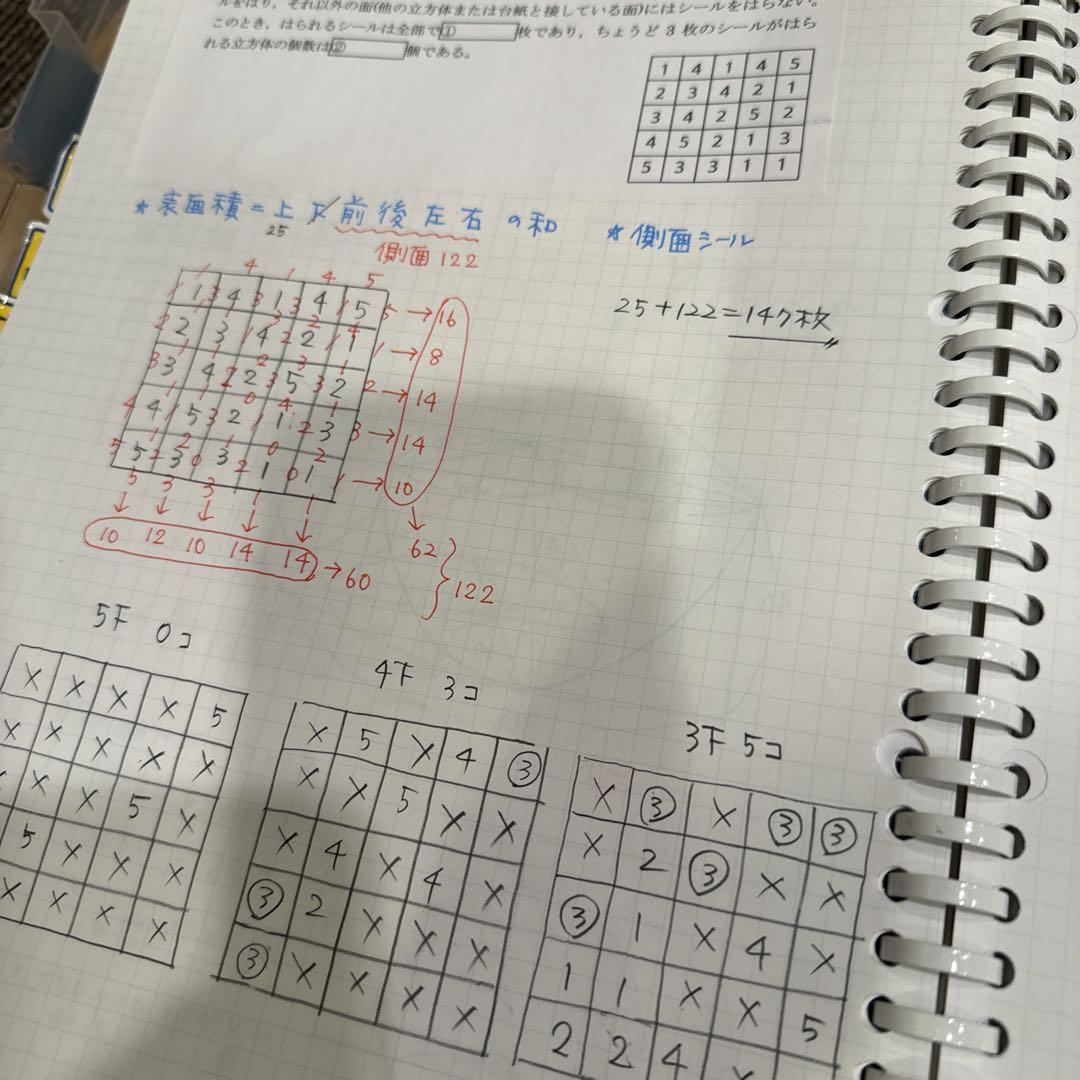 ルをはり，それ以外の面(他の立方体または台紙と接している面)にはシールをはらない。
このとき，はられるシールは全部で①枚であり，ちょうど3枚のシールがはら
れる立方体の個数は②個である。
1 4 1 4 5
2 3 4 2 1
3 4 2 5 2
4 5 2 1 3
5 3 3 1 1
★ 表面積 = 上 下 前 後 左 右 の和
25
側面 122
★ 側面シール
25+122=147枚
1 4 1 4 5
1 3 4 3 1 3 4 1 5 5 → 16
2 3 4 2 1 → 8
3 4 2 5 2 → 14
4 5 2 1 3 → 14
5 3 3 1 1 → 10
5 3 3 1 1
↓ ↓ ↓ ↓ ↓
10 12 10 14 14 → 60
62
122
5F 0コ
X X X X 5
X X X X X
X X X 5 X
5 X X X
X X X X
4F 3コ
X 5 X 4 ③
X X 5 X X
X 4 X 4 X
③ 2 X X X
③ X X X X
3F 5コ
X ③ X ③ ③
X 2 ③ X X
③ 1 X 4 X
1 1 X X 5
2 2 4 X